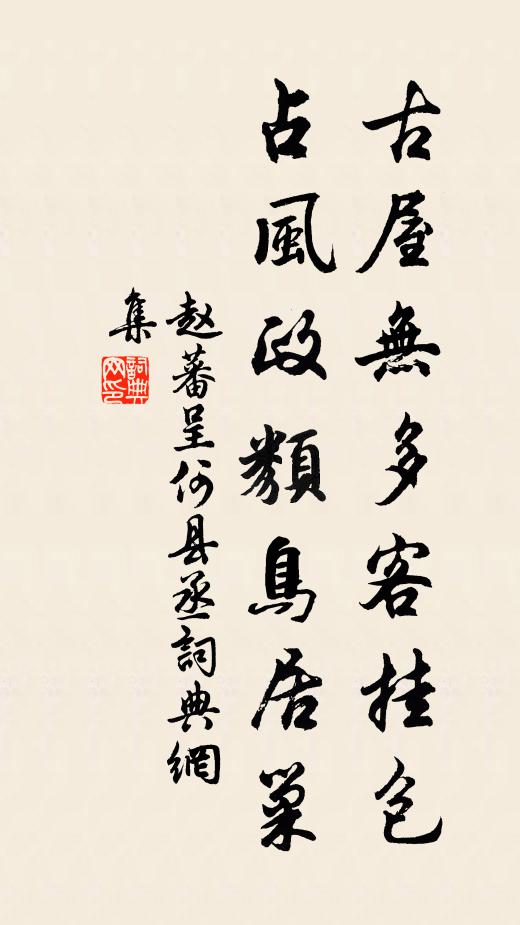 古屋無多客挂包
占風政類鳥居巢
赵蕃呈何县丞詞典網
集
詞典網印